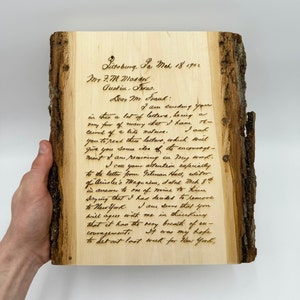 Pittsburg, Pa Mch 18, 1902
Mr F. M. Maddox,
Austin, Texas.
Dear Mr Frank:
I am sending you
in this a lot of letters, being a
very few of many that I have re-
ceived of a like nature. I want
you to read these letters, which will
give you some idea of the encourage-
ment I am receiving in my work.
I call your attention especially
to the letter from Gilman Hall, editor
of Ainslee's Magazine, dated Mch 5th
in answer to one of mine to him
saying that I had decided to remove
to New York. I am sure that you
will agree with me in thinking
that it has the very breath of en-
couragement. It was my hope
to set out last week for New York,